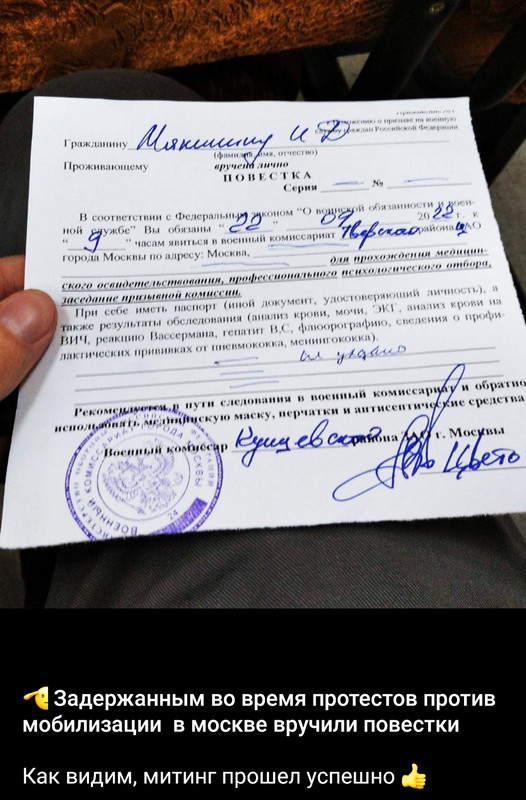 службу граждан Российской Федерации
Гражданину И Д
(фамилия, имя, отчество)
Проживающему вручена лично
ПОВЕСТКА
Серия №
В соответствии с Федеральным законом "О воинской обязанности и воен-
ной службе" Вы обязаны "22" 09 2022 г. к
"9" часам явиться в военный комиссариат Тверской района ЦАО
города Москвы по адресу: Москва, для прохождения медицин-
ского освидетельствования, профессионального психологического отбора,
заседание призывной комиссии.
При себе иметь паспорт (иной документ, удостоверяющий личность), а
также результаты обследования (анализ крови, мочи, ЭКГ, анализ крови на
ВИЧ, реакцию Вассермана, гепатит В,С, флюорографию, сведения о профи-
лактических прививках от пневмококка, менингококка).
Рекомендуется в пути следования в военный комиссариат и обратно
использовать медицинскую маску, перчатки и антисептические средства
Военный комиссар района г. Москвы
🫡Задержанным во время протестов против
мобилизации в москве вручили повестки
Как видим, митинг прошел успешно 👍